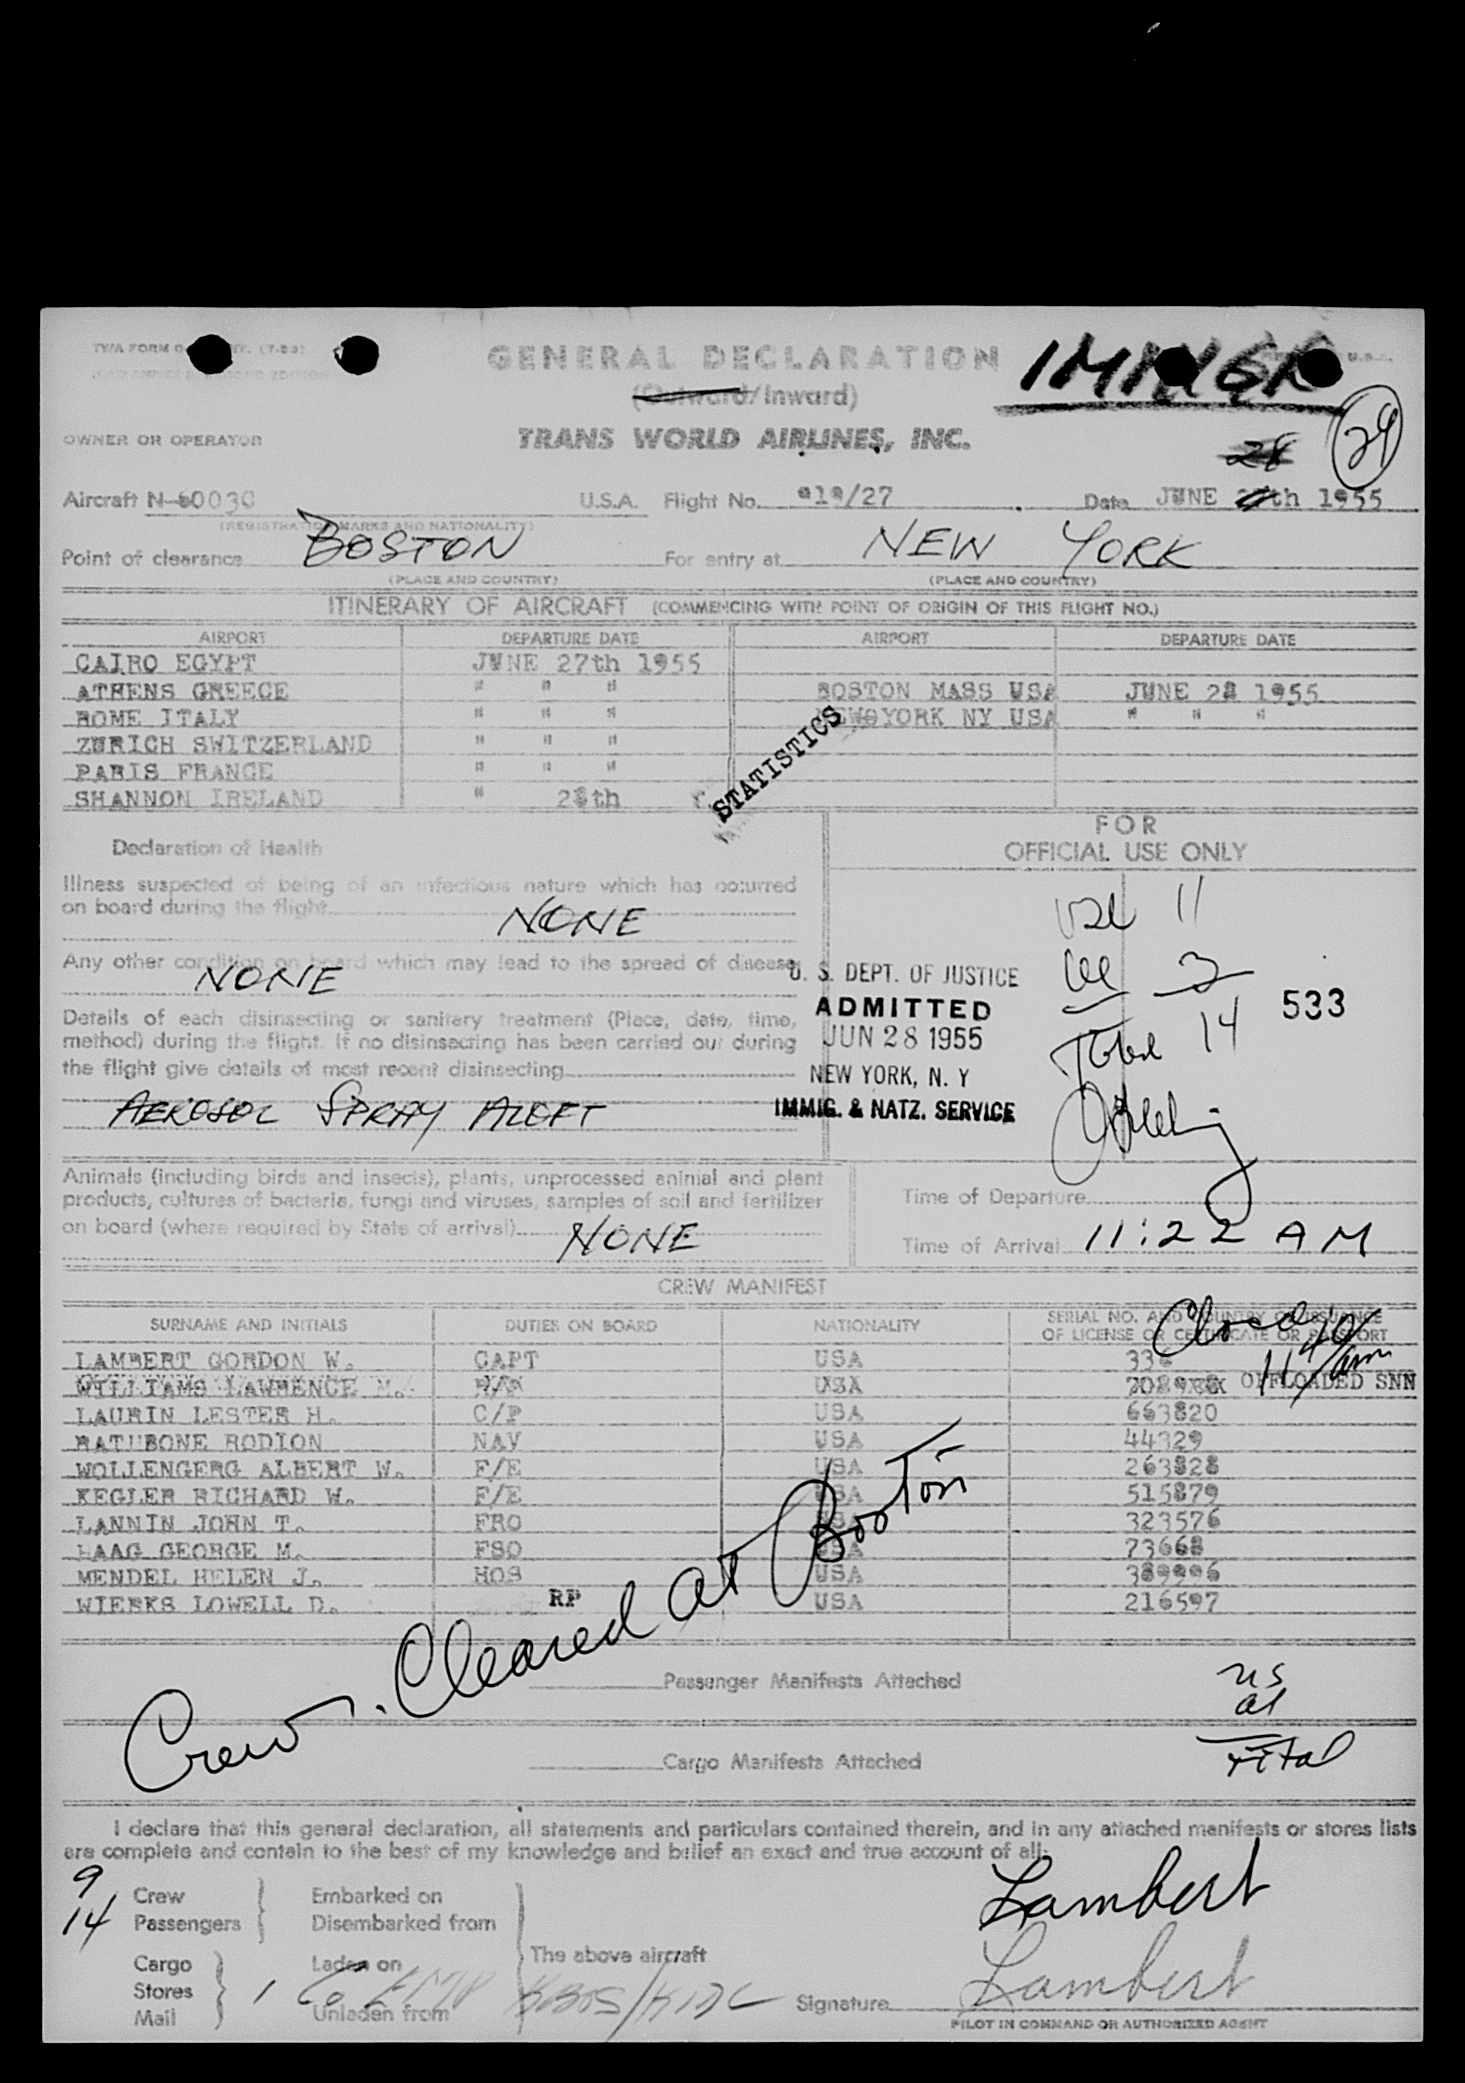 TWA FORM
GENERAL DECLARATION
IMMIGR
U.S.A.
(Outward/Inward)
29
OWNER OR OPERATOR
TRANS WORLD AIRLINES, INC.
28
Aircraft N-60030 U.S.A. Flight No. 919/27 Date JUNE 27th 1955
(REGISTRATION MARKS AND NATIONALITY)
Point of clearance BOSTON For entry at NEW YORK
(PLACE AND COUNTRY) (PLACE AND COUNTRY)
ITINERARY OF AIRCRAFT (COMMENCING WITH POINT OF ORIGIN OF THIS FLIGHT NO.)
AIRPORT DEPARTURE DATE AIRPORT DEPARTURE DATE
CAIRO EGYPT JUNE 27th 1955
ATHENS GREECE " " " BOSTON MASS USA JUNE 28 1955
ROME ITALY " " " NEW YORK NY USA " " "
ZURICH SWITZERLAND " " "
PARIS FRANCE " " "
SHANNON IRELAND " 28th
STATISTICS
FOR
OFFICIAL USE ONLY
Declaration of Health
Illness suspected of being of an infectious nature which has occurred
on board during the flight NONE
Any other condition on board which may lead to the spread of disease
NONE
Details of each disinsecting or sanitary treatment (Place, date, time,
method) during the flight. If no disinsecting has been carried out during
the flight give details of most recent disinsecting
AEROSOL SPRAY ALOFT
U. S. DEPT. OF JUSTICE
ADMITTED
JUN 28 1955
NEW YORK, N. Y
IMMIG. & NATZ. SERVICE
11
3
Total 14
533
Animals (including birds and insects), plants, unprocessed animal and plant
products, cultures of bacteria, fungi and viruses, samples of soil and fertilizer
on board (where required by State of arrival) NONE
Time of Departure
Time of Arrival 11:22 AM
CREW MANIFEST
SURNAME AND INITIALS DUTIES ON BOARD NATIONALITY SERIAL NO. AND COUNTRY OF ISSUANCE
OF LICENSE OR CERTIFICATE OR PASSPORT
LAMBERT GORDON W. CAPT USA
WILLIAMS LAWRENCE M. USA OFFLOADED SNN
LAURIN LESTER H. C/P USA 663820
RATHBONE RODION NAV USA 44329
WOLLENGERG ALBERT W. F/E USA 263828
KEGLER RICHARD W. F/E USA 515879
LANNIN JOHN T. FRO USA 323576
HAAG GEORGE M. FSO USA 73668
MENDEL HELEN J. HOS USA 389996
WIERKS LOWELL D. RP USA 216597
Crew. Cleared at Boston
Passenger Manifests Attached
US
al
Total
Cargo Manifests Attached
I declare that this general declaration, all statements and particulars contained therein, and in any attached manifests or stores lists
are complete and contain to the best of my knowledge and belief an exact and true account of all.
9 Crew Embarked on
14 Passengers Disembarked from
Lambert
Cargo Laden on The above aircraft
Stores
Mail Unladen from
Signature Lambert
PILOT IN COMMAND OR AUTHORIZED AGENT